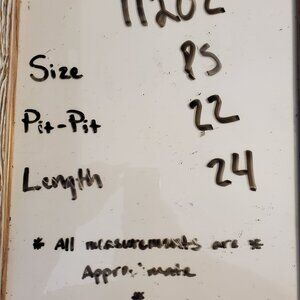 Size PS
Pit-Pit 22
Length 24
* All measurements are *
Approximate
*